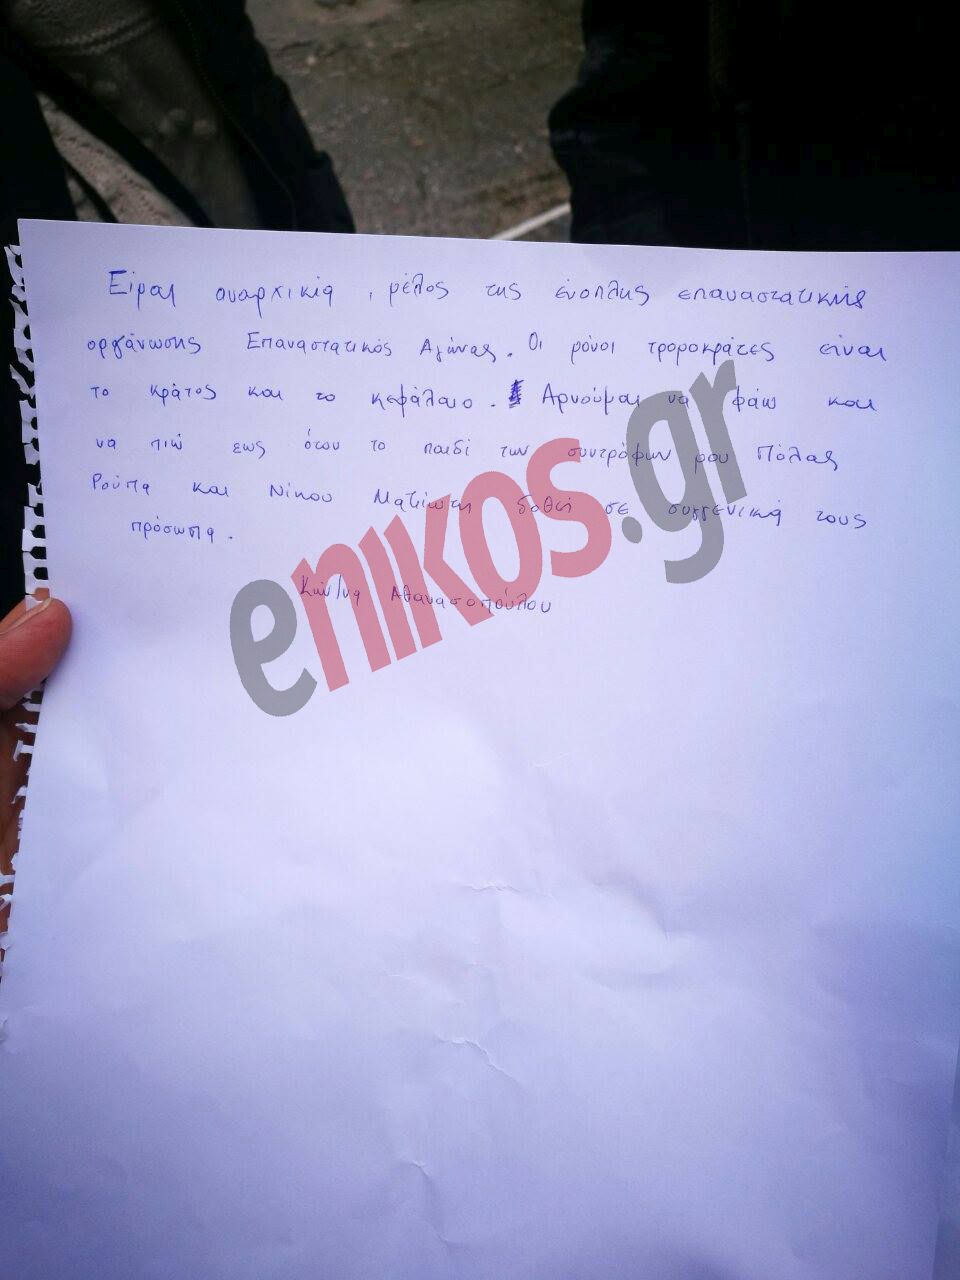 Είμαι αναρχικιά, μέλος της ένοπλης επαναστατικής
οργάνωσης Επαναστατικός Αγώνας. Οι μόνοι τρομοκράτες είναι
το κράτος και το κεφάλαιο. Αρνούμαι να φάω και
να πιώ εως ότου το παιδί των συντρόφων μου Πόλας
Ρούπα και Νίκου Μαζιώτη δοθεί σε συγγενικά τους
πρόσωπα.
Κων/να Αθανασοπούλου
enikos.gr